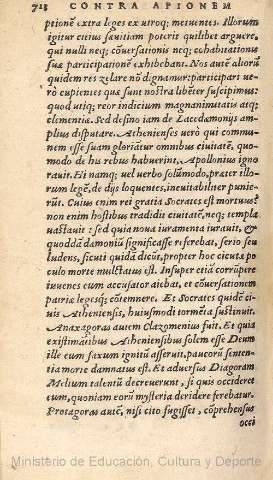 728 CONTRA APIONEM
ptionē extra leges ex utroq; metuentes. Illorum
igitur citius sæuitiam poterit quilibet arguere,
qui nulli neq; cōuersationis neq; cohabitationis
suæ participationē exhibebant. Nos autē aliorū
quidem res zelare nō dignamur: participari uero
cupientes quæ sunt nostra libēter suscipimus:
quod utiq; reor indicium magnanimitatis atq;
clementiæ. Sed desino iam de Lacedæmonijs am-
plius disputare. Athenienses uerò qui commu-
nem esse suam gloriātur omnibus ciuitatē, quo-
modo de his rebus habuerint, Apollonius igno
rauit. Hi namq; uel uerbo solūmodo, præter illo-
rum legē, de dijs loquentes, ineuitabiliter punie-
rūt. Cuius enim rei gratia Socrates est mortuus?
non enim hostibus tradidit ciuitatē, neq; templa
uastauit: sed quia noua iuramenta iurauit, &
quoddā damoniū significasse referebat, serio seu
ludens, sicuti quidā dicūt, propter hoc cicutæ po
culo morte mulctatus est. Insuper etiā corrūpere
iuuenes eum accusator aiebat, et cōuersationem
patriæ legesq; cōtemnere. Et Socrates quidē ci-
uis Atheniensis, huiusmodi tormēta sustinuit.
Anaxagoras autem Clazomenius fuit. Et quia
existimātibus Atheniensibus solem esse Deum
ille eum saxum ignitū asseruit, paucorū senten-
tia morte damnatus est. Et aduersus Diagoram
Melium talentū decreuerunt, si quis occideret
eum, quoniam eorū mysteria deridere ferebatur.
Protagoras autē, nisi cito fugisset, cōprehensus
occi
Ministerio de Educación, Cultura y Deporte